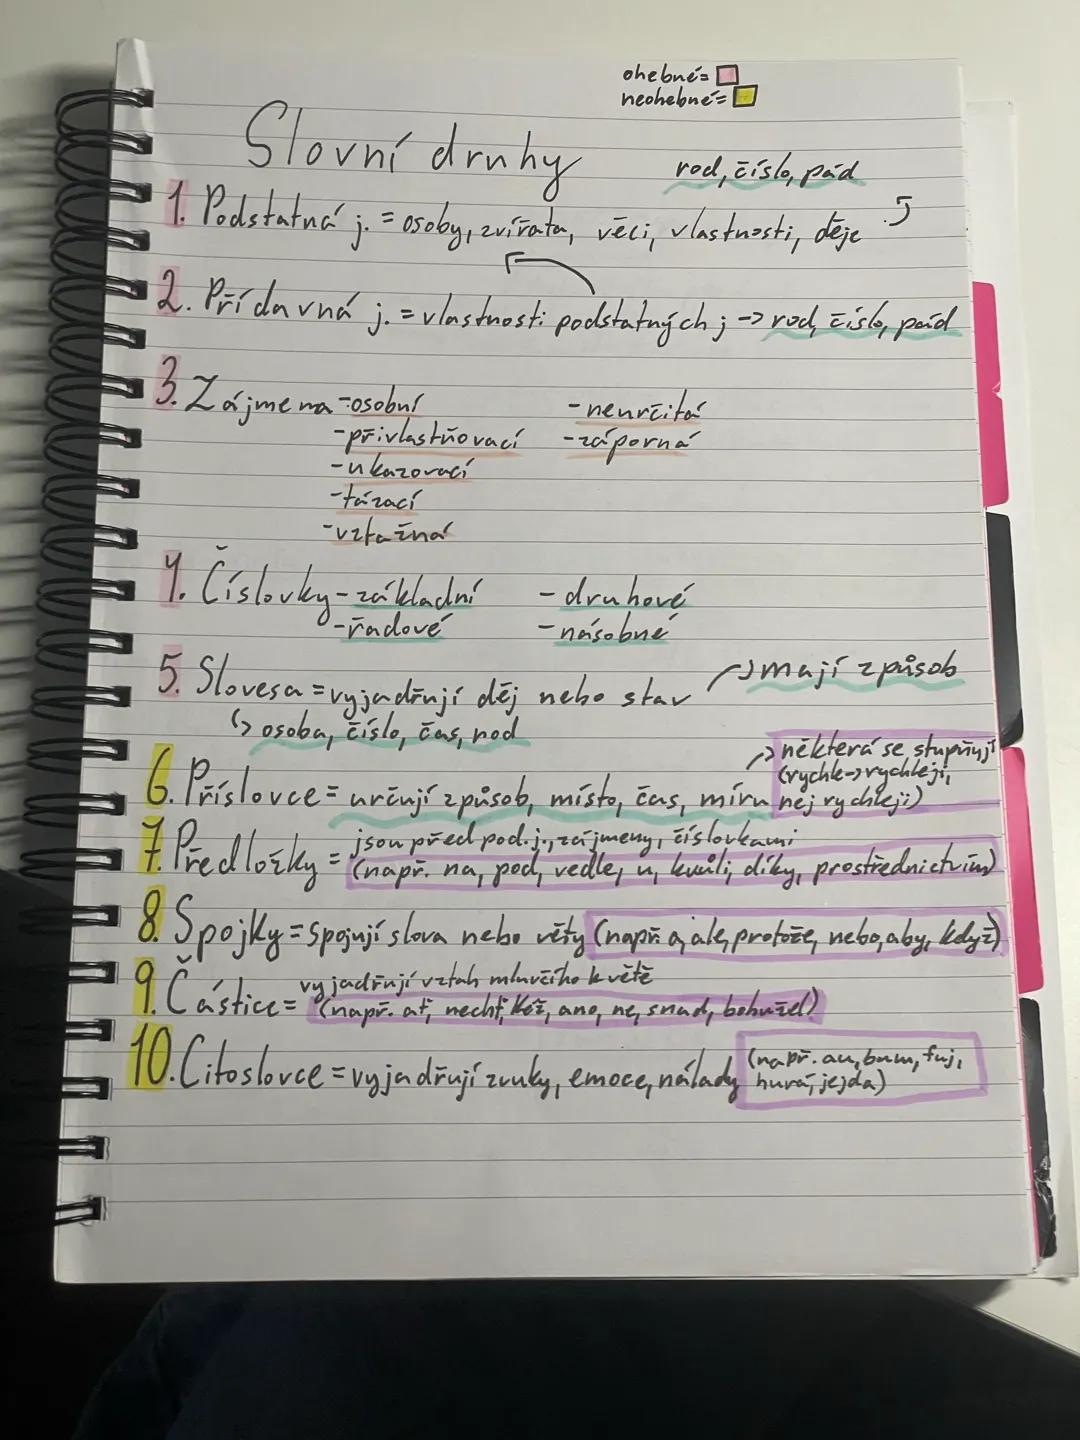 ohebné=
neohebné=
Slovní druhy
rod, číslo, pád
1. Podstatná j. = osoby, zvířata, věci, vlastnosti, děje
2. Přídavná j. = vlastnosti podstatných j -> rod, číslo, pád
3. Zájmena -osobní -neurčitá
-přivlastňovací -záporná
-ukazovací
-tázací
-vztažná
4. Číslovky -základní -druhové
-řadové -násobné
5. Slovesa = vyjadřují děj nebo stav mají způsob
osoba, číslo, čas, rod
některá se stupňují
(rychle->rychleji,
6. Příslovce = určují způsob, místo, čas, míru nejrychleji)
jsou před pod. j., zájmeny, číslovkami
7. Předložky = (např. na, pod, vedle, u, kvůli, díky, prostřednictvím)
8. Spojky = Spojují slova nebo věty (např. a, ale, protože, nebo, aby, když)
vyjadřují vztah mluvčího k větě
9. Částice = (např. ať, nechť, kéž, ano, ne, snad, bohužel)
10. Citoslovce = vyjadřují zvuky, emoce, nálady (např. au, bum, fuj,
hurá, jejda)